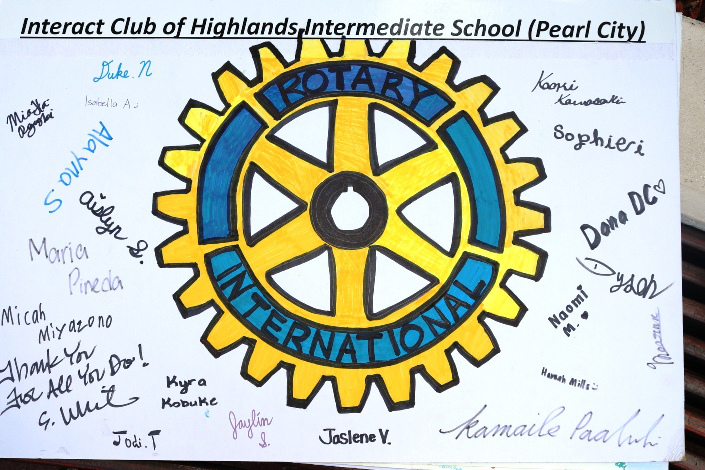 Interact Club of Highlands Intermediate School (Pearl City)
Duke. N
Isabella A
Alayna S
Aislyn S.
Maria
Pineda
Micah
Miyazono
Thank You
For All You Do!
Jodi. T
Kyra
Kobuke
Jaylin
S.
Jaslene V.
ROTARY
INTERNATIONAL
Kaori
Kawasaki
Sophieri
Dana DC♡
Dyson
Naomi
M. ♥
Hannah Mills
Kamaile